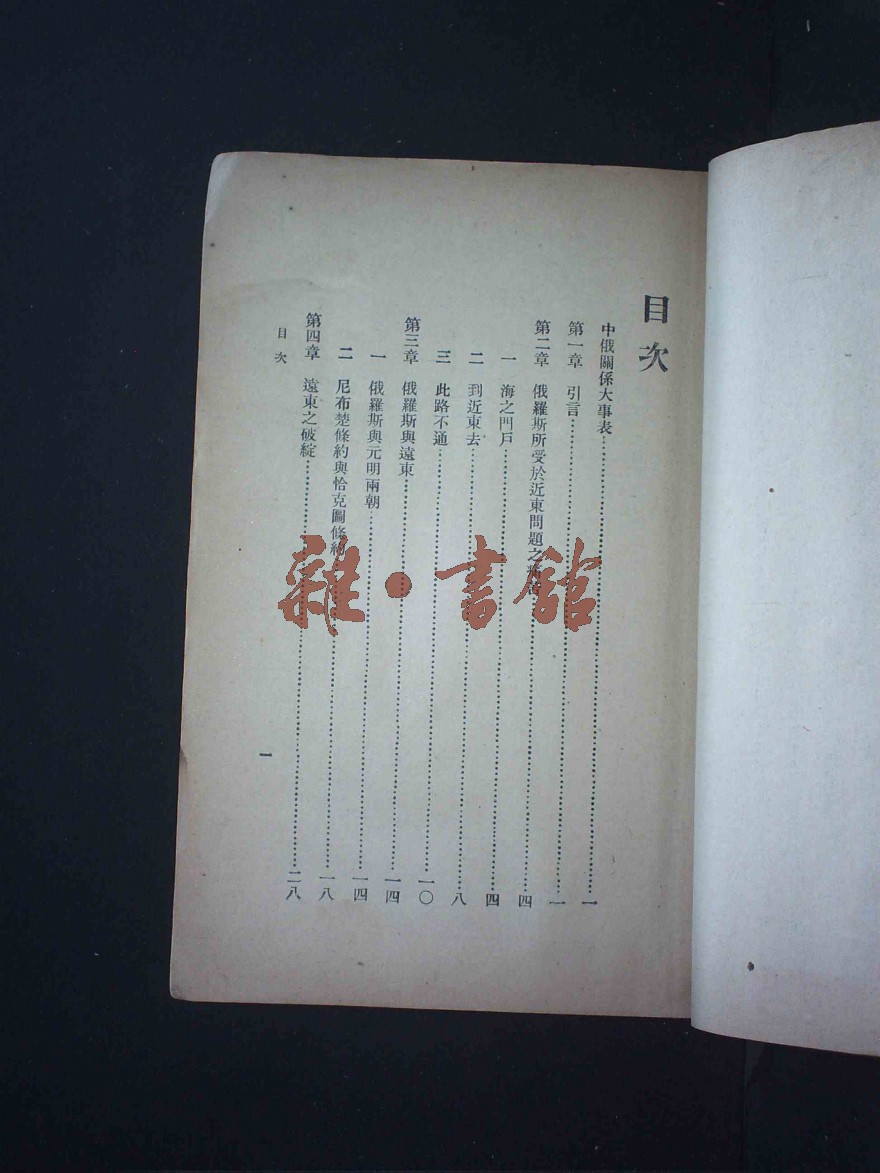 目次
中俄關係大事表……一
第一章 引言……一
第二章 俄羅斯所受於近東問題之……四
一 海之門戶……四
二 到近東去……八
三 此路不通……一〇
第三章 俄羅斯與遠東……一四
一 俄羅斯與元明兩朝……一四
二 尼布楚條約與恰克圖條約……一八
第四章 遠東之破綻……二八
目次
一
雜·書館